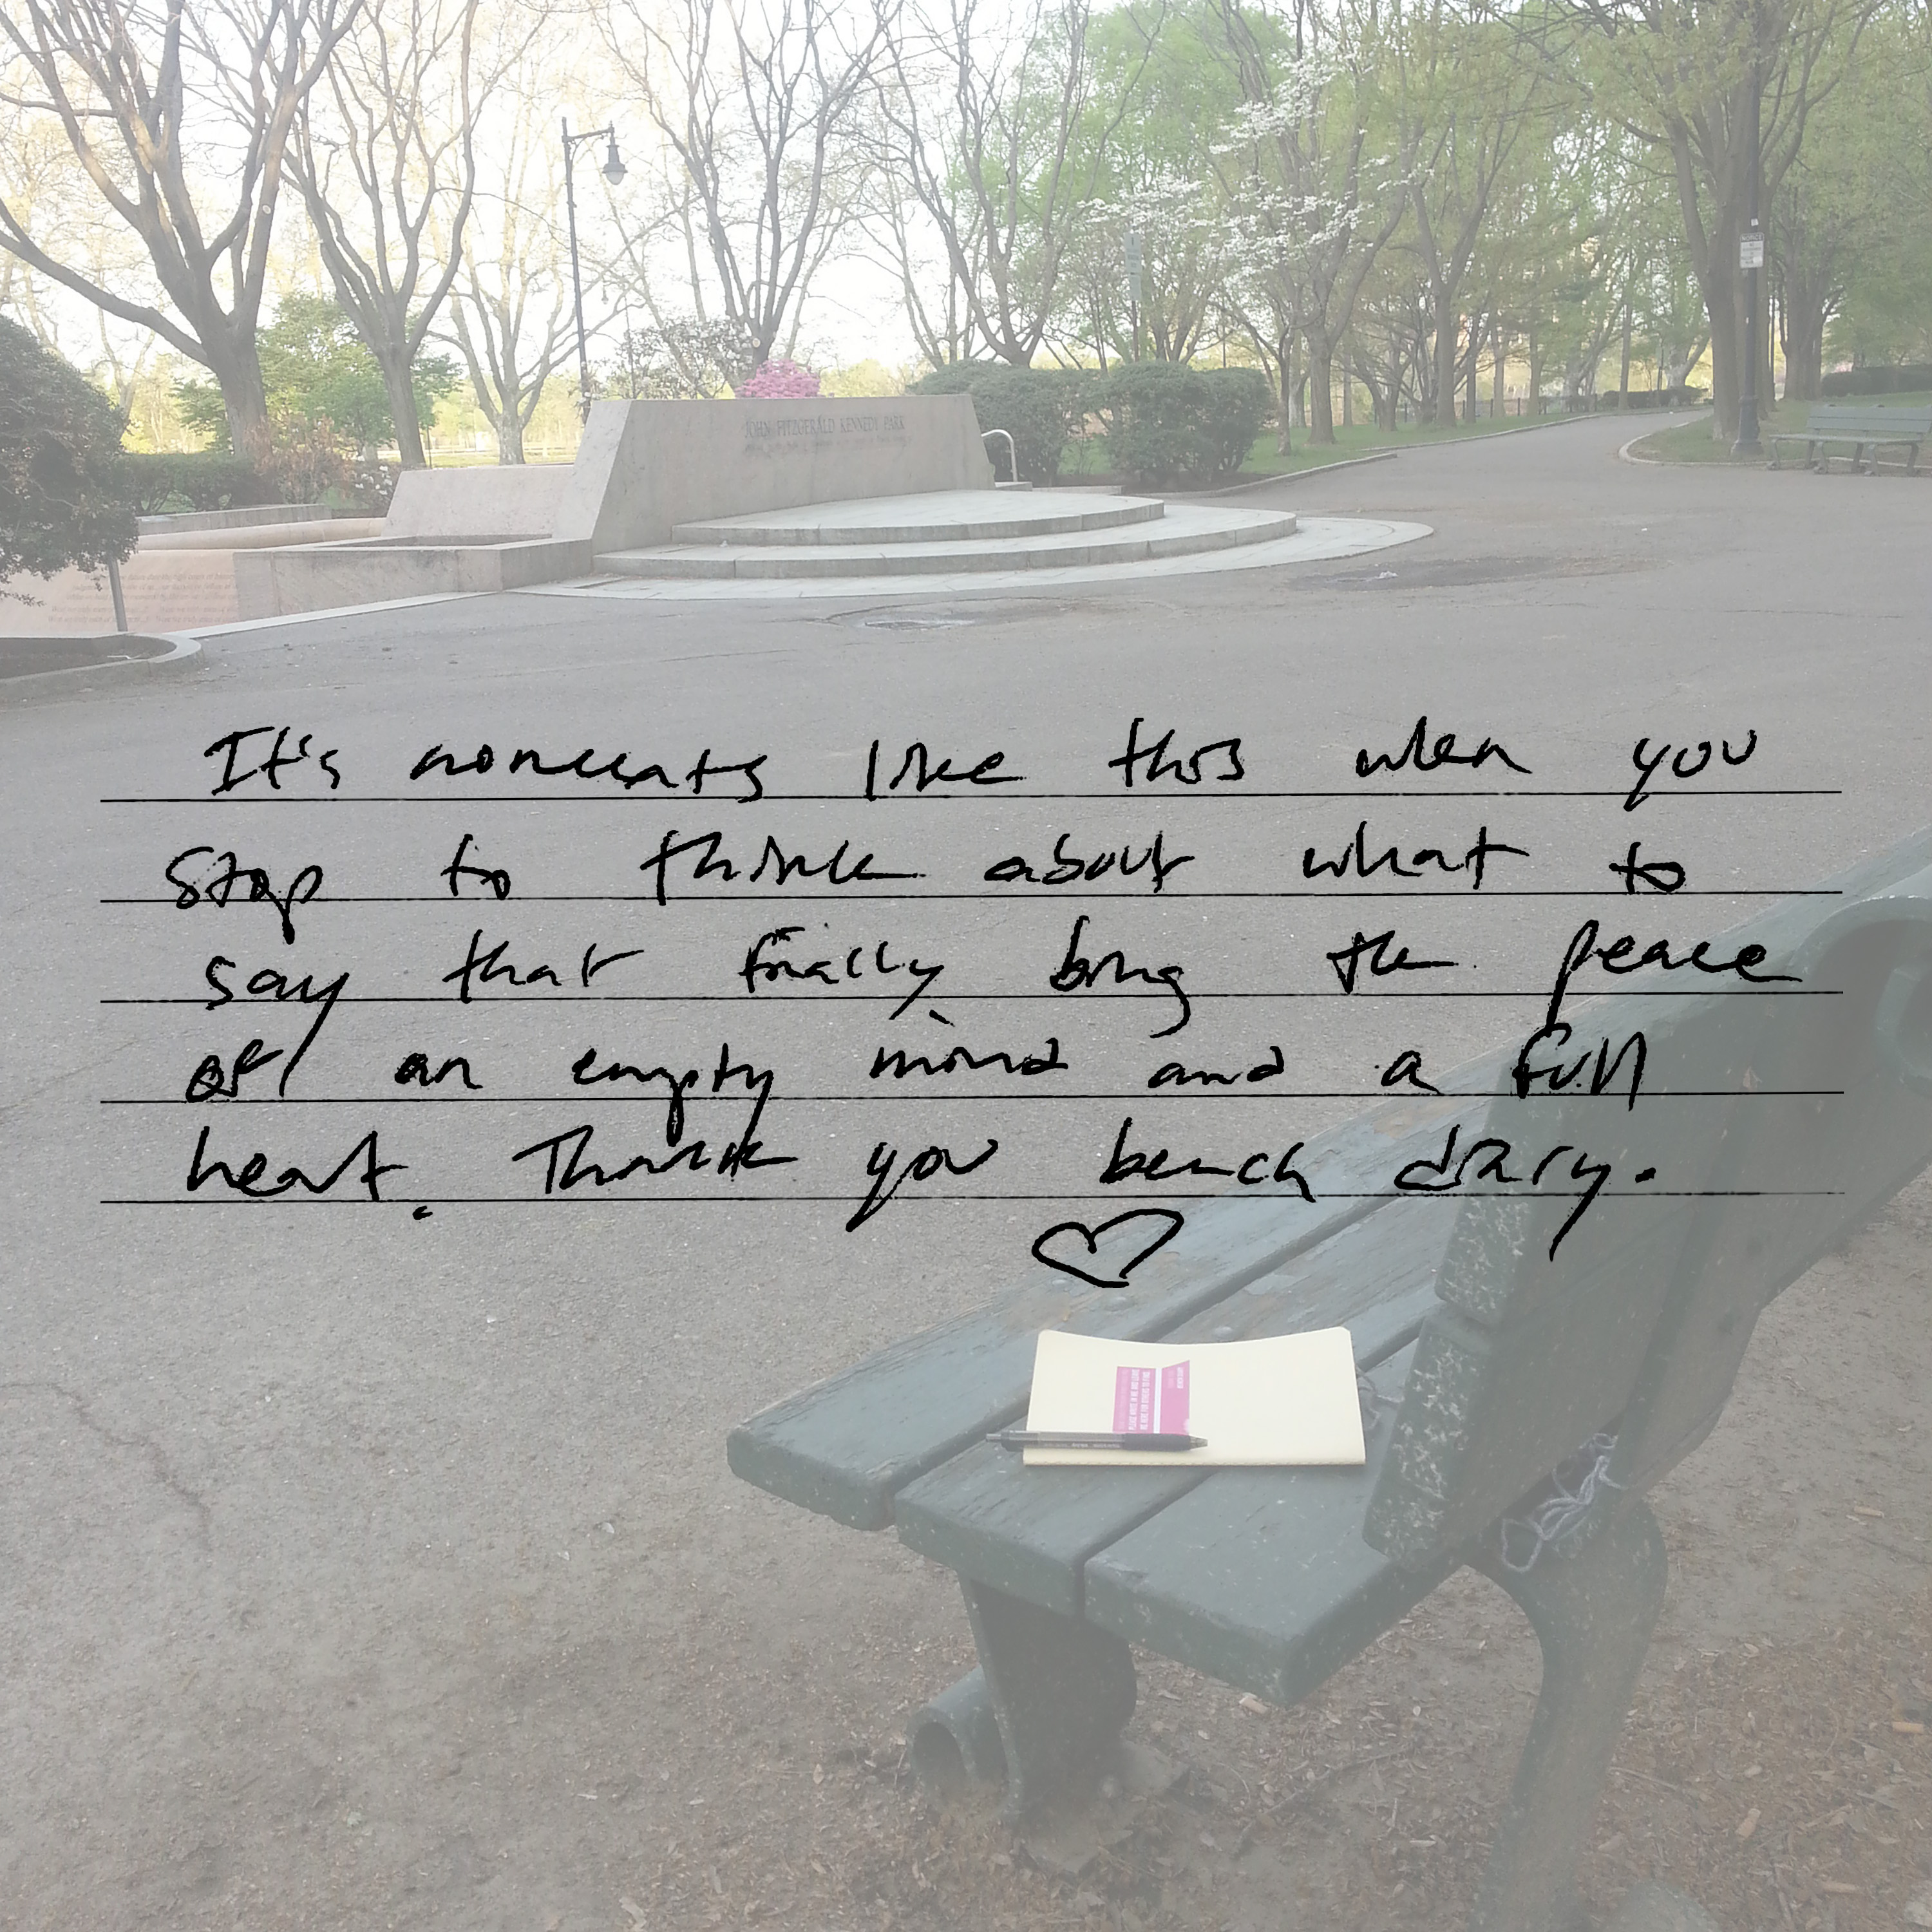 JOHN FITZGERALD KENNEDY PARK
NOTICE
It's moments like this when you
stop to think about what to
say that finally bring the peace
of an empty mind and a full
heart. Thank you bench diary.